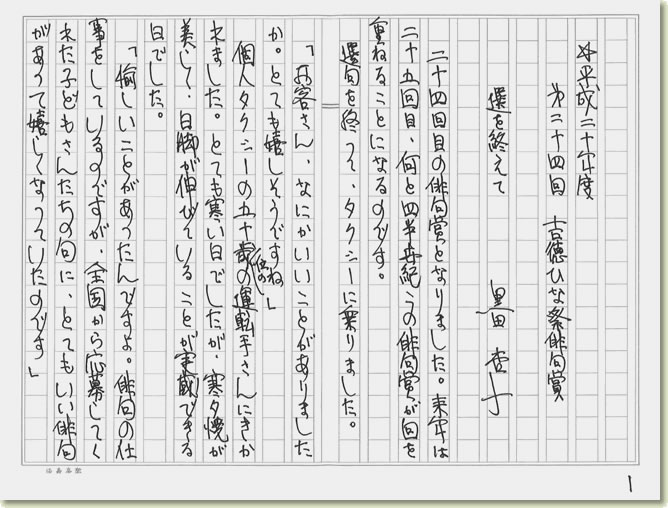 平成二十年度
第二十四回　吉徳ひな祭俳句賞
選を終えて　黒田杏子
二十四回目の俳句賞となりました。来年は
二十五回目、何と四半世紀もの俳句賞が回を
重ねることになるのです。
選句を終って、タクシーに乗りました。
「お客さん、なにかいいことがありました
か。とても嬉しそうですね」
個人タクシーの五十歳位の運転手さんにきか
れました。とても寒い日でしたが、寒夕焼が
美しく、日脚が伸びていることが実感できる
日でした。
「愉しいことがあったんですよ。俳句の仕
事をしているのですが、全国から応募してく
れた子どもさんたちの句に、とてもいい俳句
があって嬉しくなっていたのです」
1